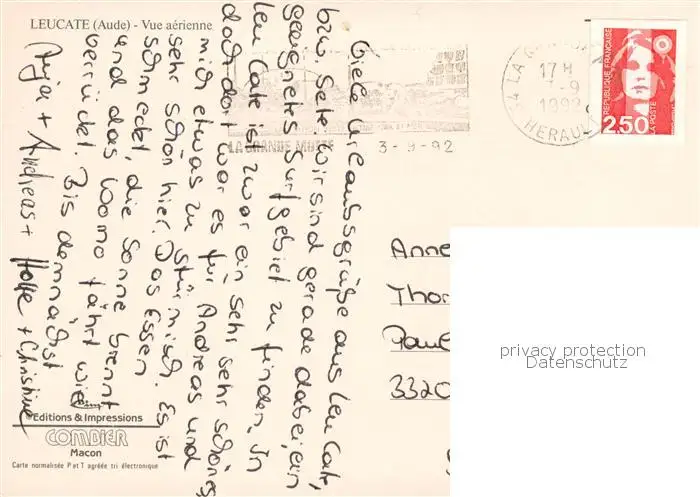 LEUCATE (Aude) - Vue aérienne
Viele Urlaubsgrüße aus Leucate,
bzw. Sete, wir sind gerade dabei, ein
geeignetes Surfgebiet zu finden. In
Leucate ist zwar ein sehr schönes
doch dor war es für Andreas und
mich etwas zu stürmisch. Es ist
sehr schön hier. Das Essen
schmeckt, die Sonne brennt
und das Womo fährt wie
verrückt. Bis demnächst
Anja + Andreas + Holge + Christine
Editions & Impressions
COMBIER
Macon
Carte normalisée P et T agréée tri électronique
LA GRANDE MOTTE
3-9-92
17 H
1992
HERAULT
REPUBLIQUE FRANÇAISE
2,50
LA POSTE
Anne
Thor
Paul
3320
privacy protection
Datenschutz